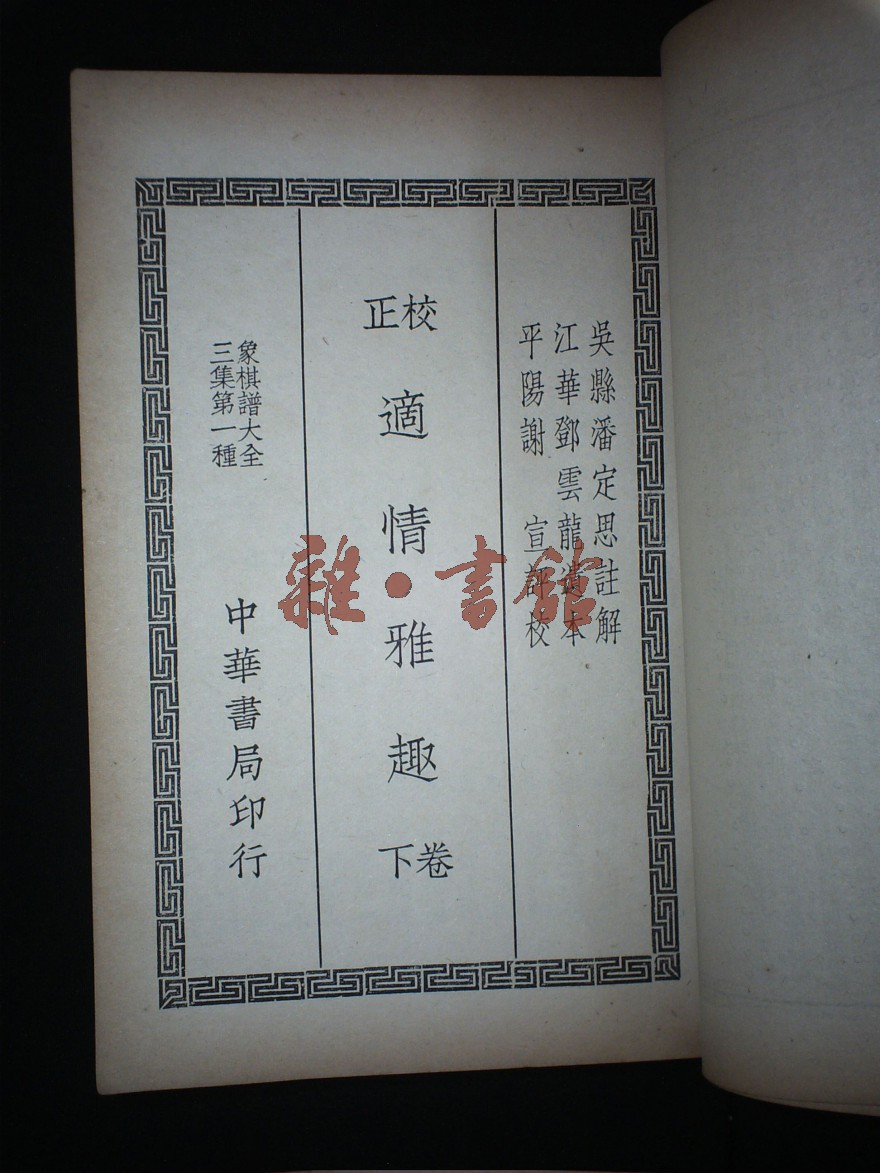 吳縣潘定思註解
江華鄧雲龍遺本
平陽謝　宣評校
校正
適情雅趣
卷下
象棋譜大全
三集第一種
中華書局印行
雜·書館